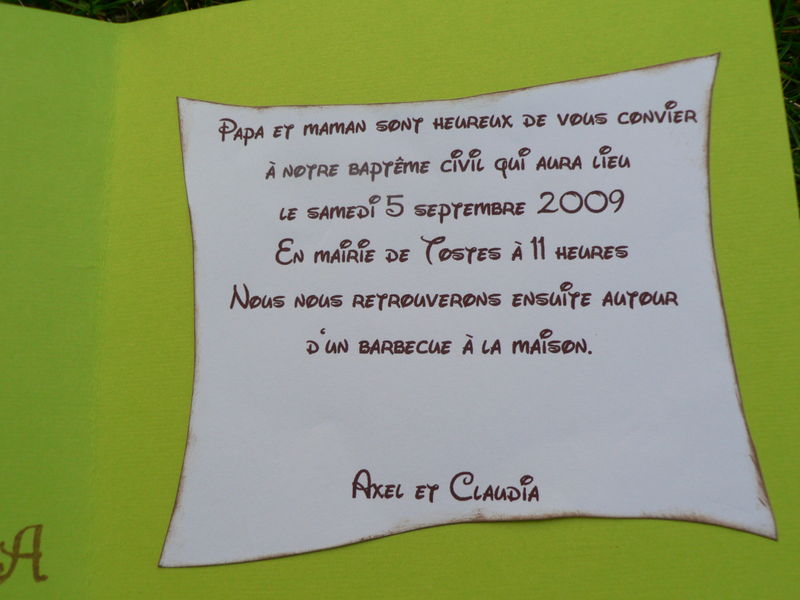 Papa et maman sont heureux de vous convier
à notre baptême civil qui aura lieu
le samedi 5 septembre 2009
En mairie de Tostes à 11 heures
Nous nous retrouverons ensuite autour
d'un barbecue à la maison.
Axel et Claudia
A